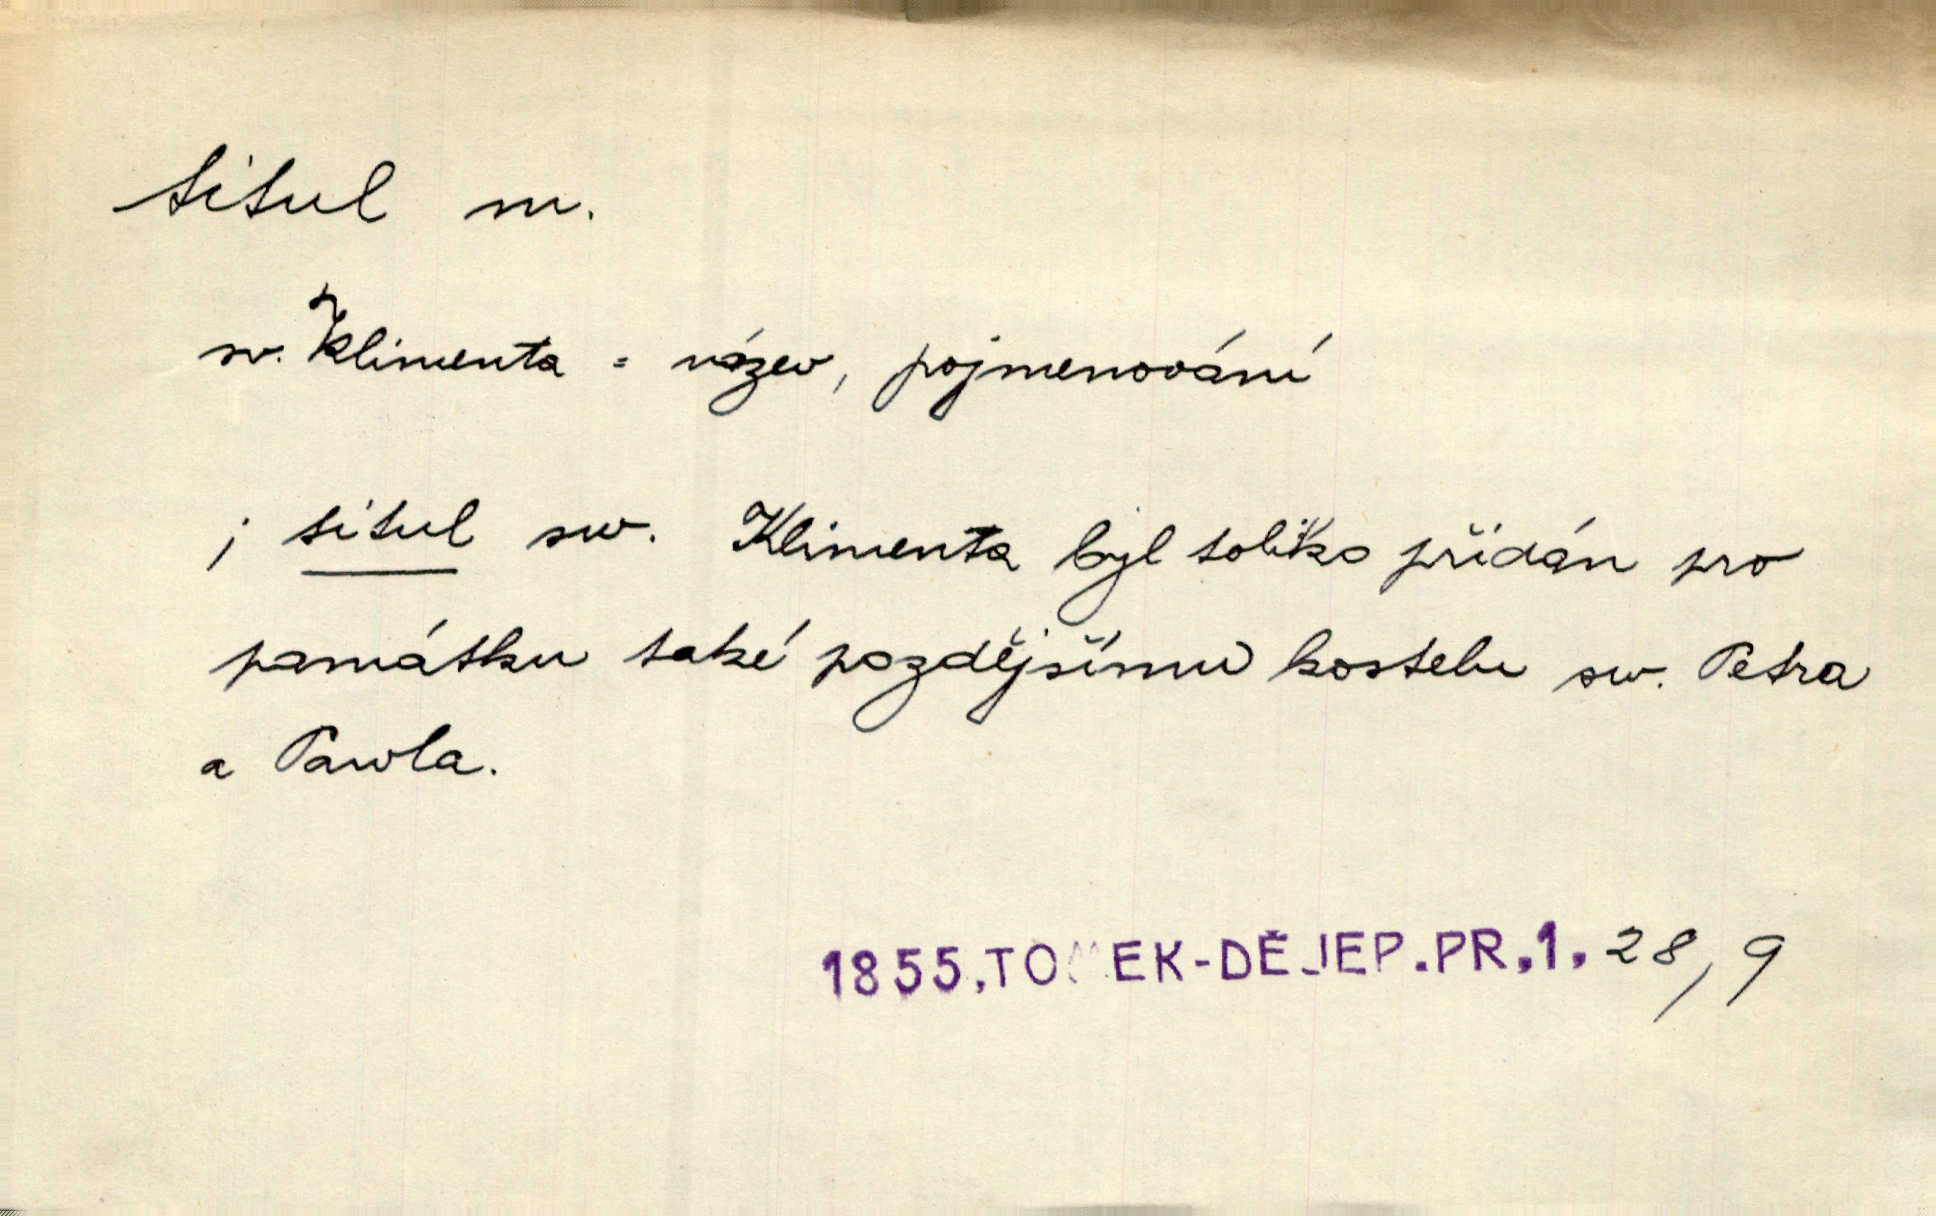 titul m.
sv. Klimenta = název, pojmenování
; titul sw. Klimenta byl toliko přidán pro
památku také pozdějšímu kostelu sw. Petra
a Pawla.
1855.TOMEK-DĚJEP.PR.1. 28, 9